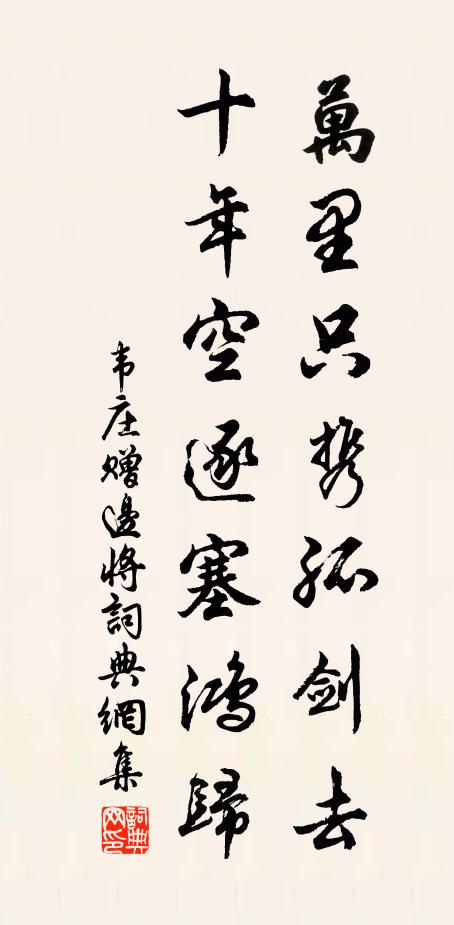 萬里只携孤劍去
十年空逐塞鴻歸
韦庄贈邊將詞典網集
詞典网印